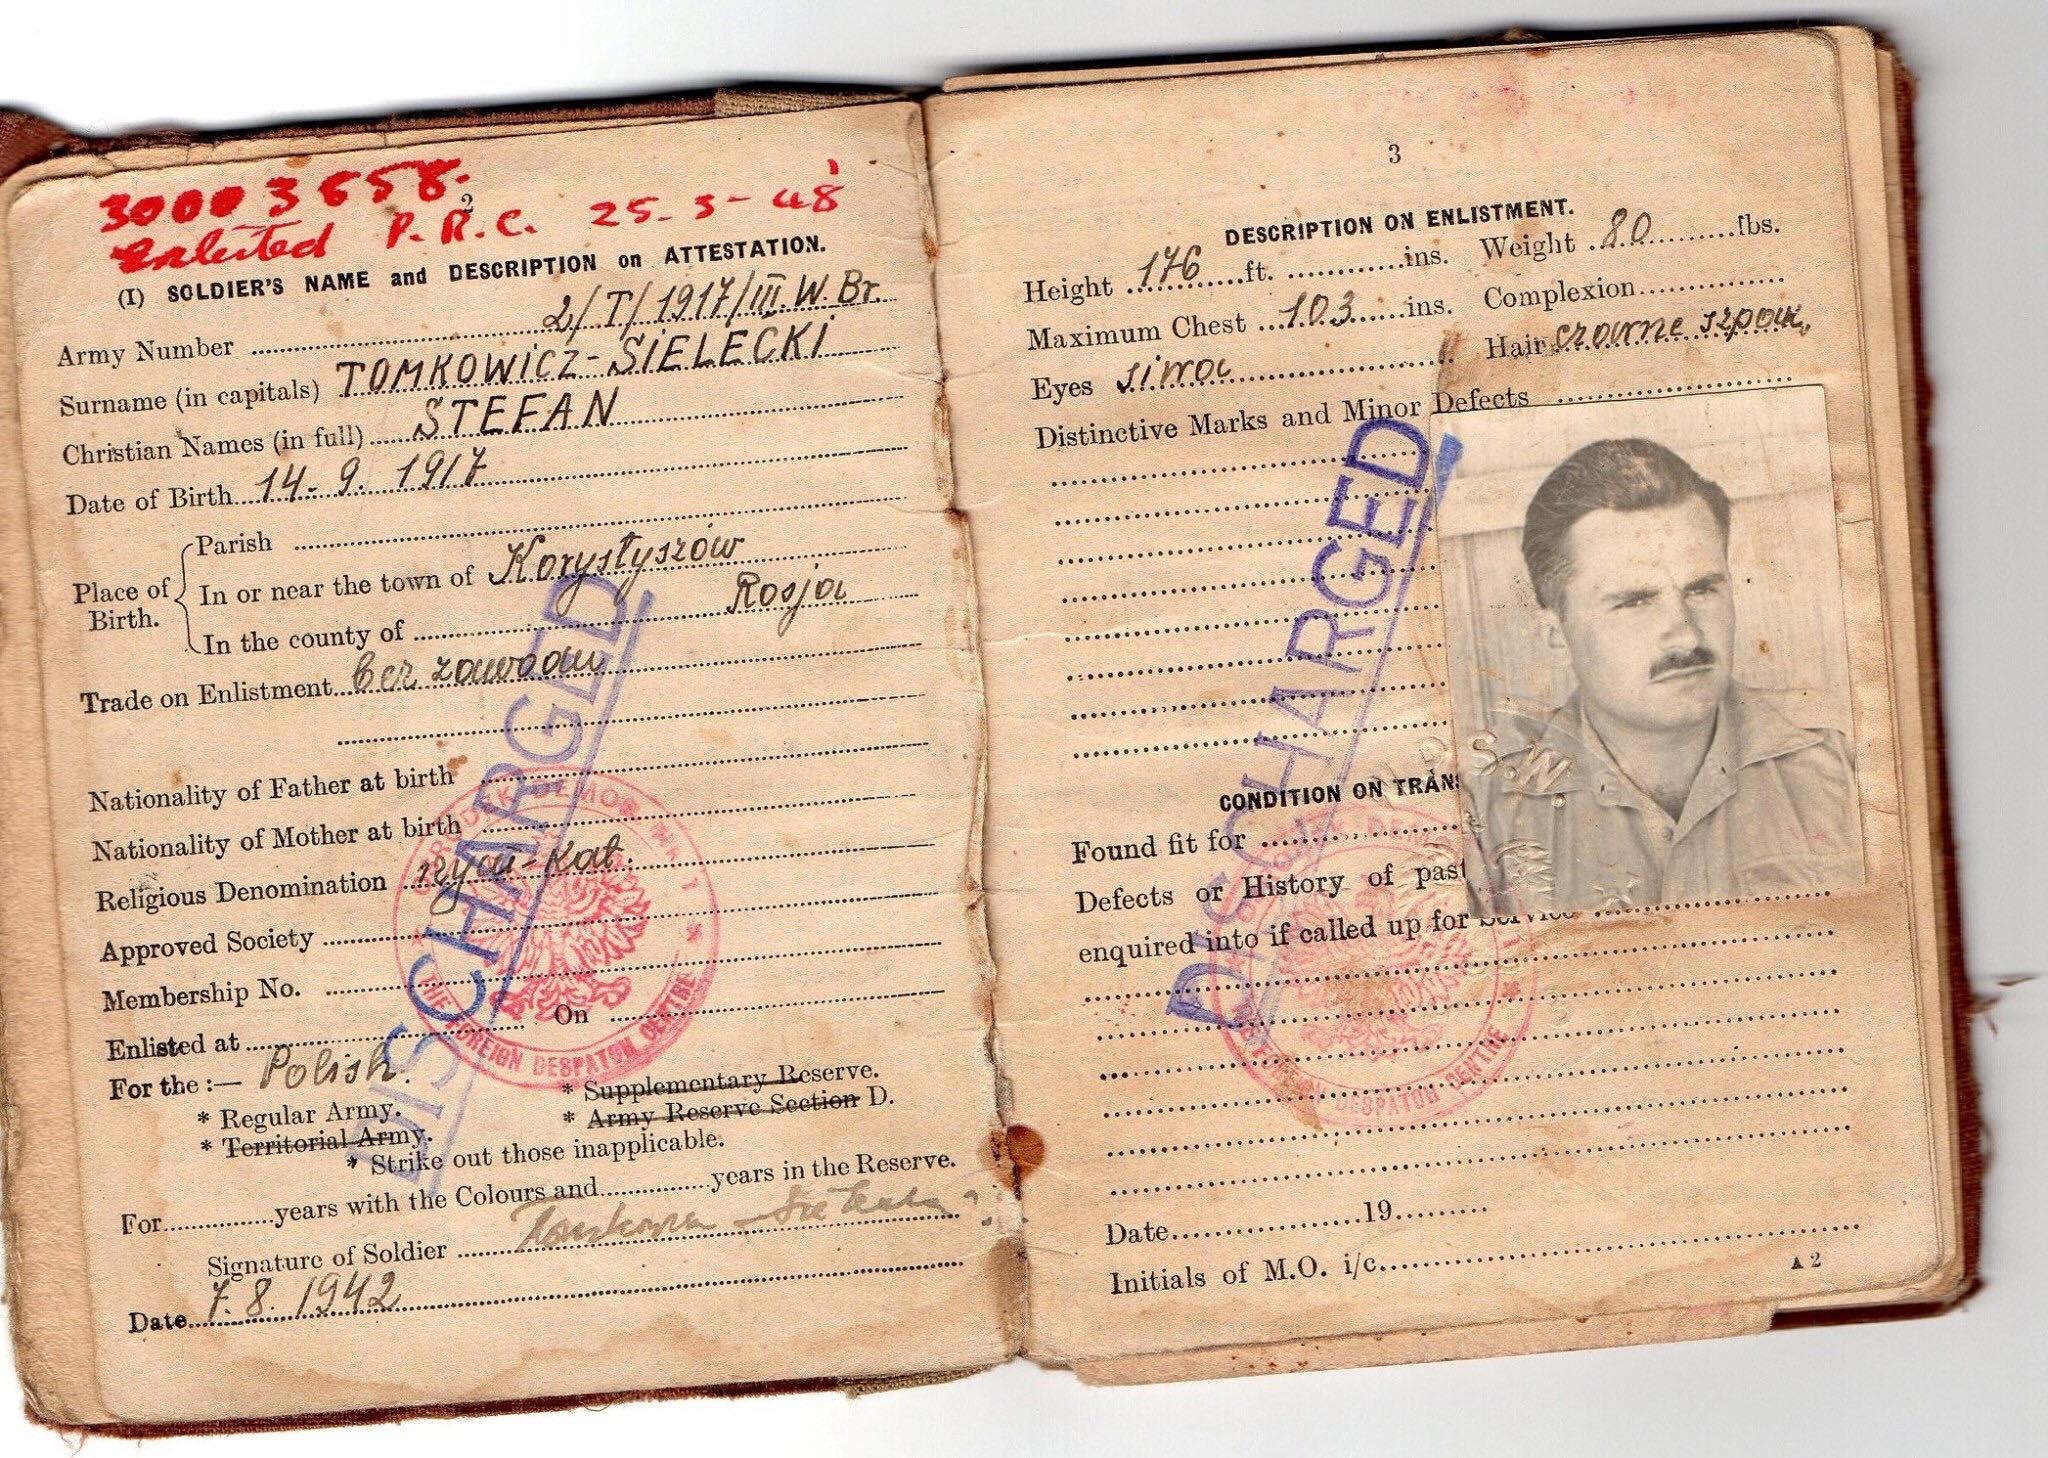 30003658.
2
Enlisted P.R.C. 25-3-48
(I) SOLDIER'S NAME and DESCRIPTION on ATTESTATION.
Army Number 2/T/1917/III W. Br.
Surname (in capitals) TOMKOWICZ-SIELECKI
Christian Names (in full) STEFAN
Date of Birth 14-9. 1917
Place of Birth.
Parish
In or near the town of Korystyszów
In the county of Rosja
Trade on Enlistment bez zawodu
Nationality of Father at birth
Nationality of Mother at birth
Religious Denomination rzym-kat.
Approved Society
Membership No.
Enlisted at On
For the :— Polish.
* Regular Army. * Supplementary Reserve.
* Territorial Army. * Army Reserve Section D.
* Strike out those inapplicable.
For years with the Colours and years in the Reserve.
Signature of Soldier
Date 7.8.1942
DISCHARGED
THE FOREIGN DESPATCH CENTRE
3
DESCRIPTION ON ENLISTMENT.
Height 176 ft. ins. Weight 80 lbs.
Maximum Chest 103 ins. Complexion
Eyes siwe Hair czarne szpak.
Distinctive Marks and Minor Defects
CONDITION ON TRANS
Found fit for
Defects or History of past
enquired into if called up for Service
Date 19
Initials of M.O. i/c
A 2
DISCHARGED
P.S.W.
FOREIGN DESPATCH CENTRE